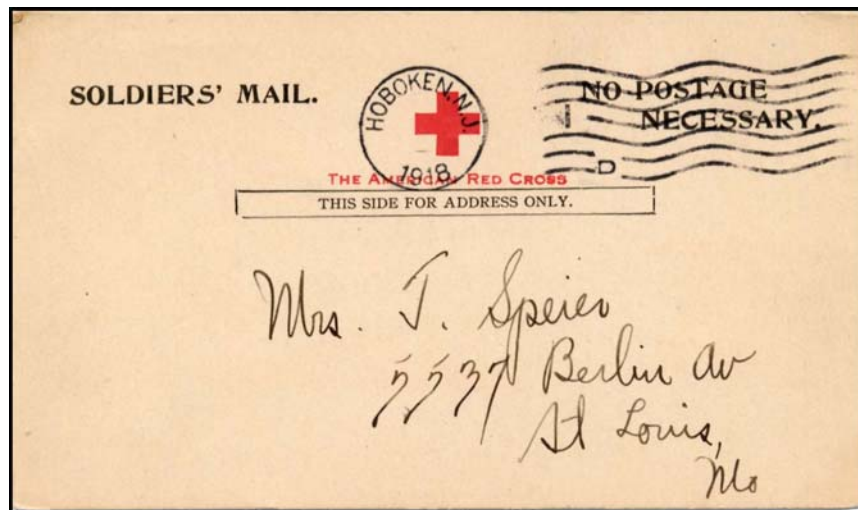 SOLDIERS' MAIL.
HOBOKEN, N.J.
1918
NO POSTAGE
NECESSARY.
D
THE AMERICAN RED CROSS
THIS SIDE FOR ADDRESS ONLY.
Mrs. J. Speier
5537 Berlin Av
St Louis,
Mo